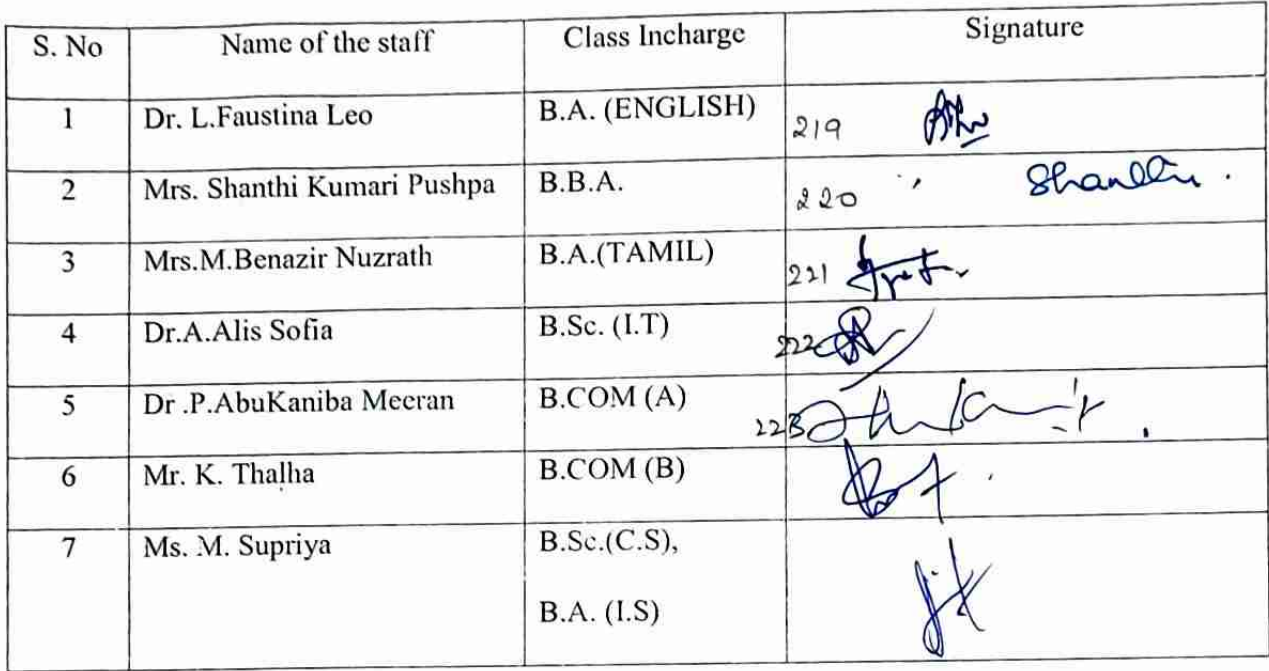 S. No Name of the staff Class Incharge Signature
1 Dr. L.Faustina Leo B.A. (ENGLISH) 219
2 Mrs. Shanthi Kumari Pushpa B.B.A. 220 Shanthi.
3 Mrs.M.Benazir Nuzrath B.A.(TAMIL) 221
4 Dr.A.Alis Sofia B.Sc. (I.T) 222
5 Dr .P.AbuKaniba Meeran B.COM (A) 223
6 Mr. K. Thalha B.COM (B)
7 Ms. M. Supriya B.Sc.(C.S),
B.A. (I.S)